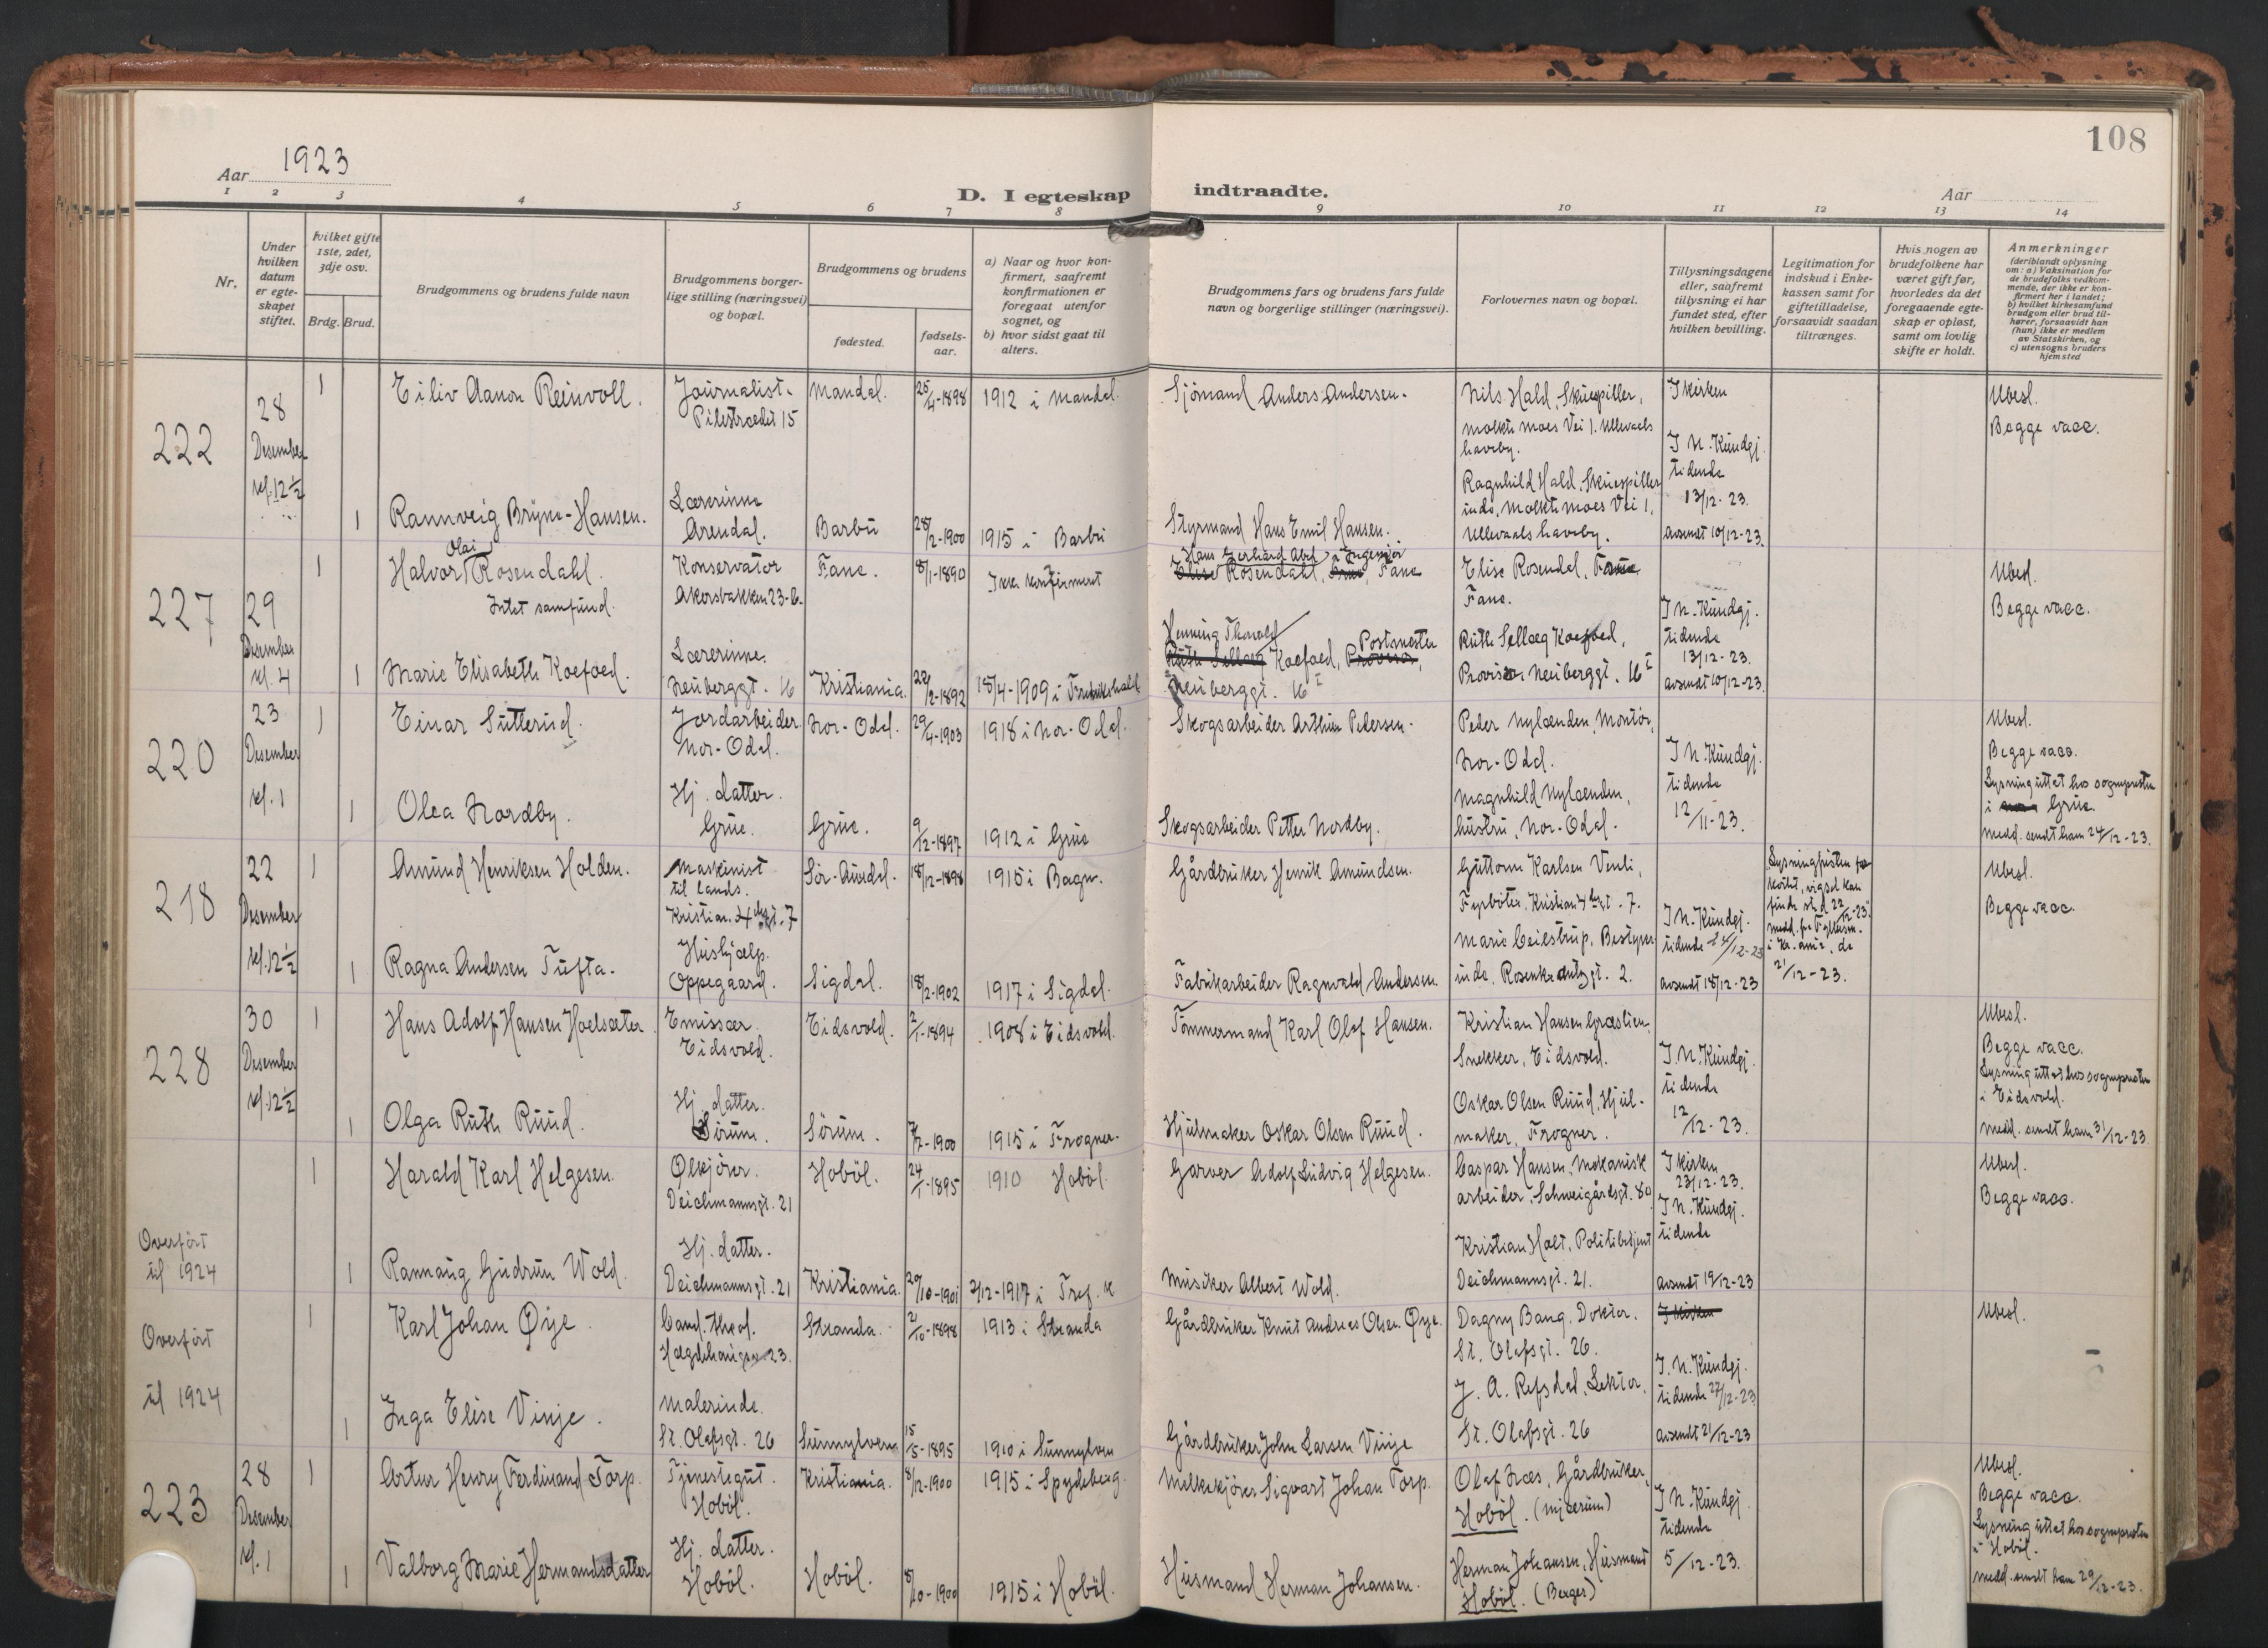 108
Aar 1923
D. I egteskap indtraadte.
Aar
1 2 3 4 5 6 7 8 9 10 11 12 13 14
Nr.
Under hvilken datum er egteskapet stiftet.
hvilket gifte 1ste, 2det, 3dje osv.
Brdg. Brud.
Brudgommens og brudens fulde navn
Brudgommens borgerlige stilling (næringsvei) og bopæl.
Brudgommens og brudens
fødested.
fødselsaar.
a) Naar og hvor konfirmert, saafremt konfirmationen er foregaat utenfor sognet, og
b) hvor sidst gaat til alters.
Brudgommens fars og brudens fars fulde navn og borgerlige stillinger (næringsvei).
Forlovernes navn og bopæl.
Tillysningsdagene eller, saafremt tillysning ei har fundet sted, efter hvilken bevilling.
Legitimation for indskud i Enkekassen samt for giftetilladelse, forsaavidt saadan tiltrænges.
Hvis nogen av brudefolkene har været gift før, hvorledes da det foregaaende egteskap er opløst, samt om lovlig skifte er holdt.
Anmerkninger
(deriblandt oplysning om: a) Vaksination for de brudefolks vedkommende, der ikke er konfirmert her i landet;
b) hvilket kirkesamfund brudgom eller brud tilhører, forsaavidt han (hun) ikke er medlem av Statskirken, og
c) utensogns bruders hjemsted
222
28
Desember
kl. 12 1/2
1
Eiliv Aanon Reinvoll.
Journalist.
Pilestrædet 15
Mandal.
25/4-1898
1912 i Mandal.
Sjömand Anders Andersen.
Nils Hald, Skuespiller,
Moltke Moes Vei 1. Ullevaals
haveby.
Ragnhild Hald, Skuespiller
inde, Moltke Moes Vei 1,
Ullevaals haveby.
I kirken
I N. Kundgj.
tidende
13/12-23.
avsendt 10/12-23.
Ubesl.
Begge vacc.
1
Rannveig Bryne-Hansen.
Lærerinne
Arendal.
Barbu
28/2-1900
1915 i Barbu
Styrmand Hans Emil Hansen.
227
29
Desember
kl. 4
1
Olai
Halvor Rosendahl.
Intet samfund.
Konservator
Akersbakken 23-b.
Fane.
8/1-1890
Ikke konfirmeret
Hans Gerhard Abel Ingeniör
Elise Rosendahl, Fane
Elise Rosendal, Fane
Fane.
Ruth Sellæg Koefoed,
Provisor Neuberggt. 16 I
I N. Kundgj.
tidende
13/12-23.
avsendt 10/12-23.
Ubesl.
Begge vacc.
1
Marie Elisabeth Koefoed.
Lærerinne.
Neuberggt. 16
Kristiania.
22/2-1892
18/4-1909 i Fredrikshald
Henning Thorvald Postmester
Ruth Sellæg Koefoed, Provisor,
Neuberggt. 16 I
220
23
Desember
kl. 1
1
Einar Sutterud.
Jordarbeider
Nor-Odal.
Nor-Odal.
29/4-1903
1918 i Nor-Odal.
Skogsarbeider Arthur Pedersen.
Peder Nylænden, Montör,
Nor-Odal.
Magnhild Nylænden,
hustru, Nor-Odal.
I N. Kundgj.
tidende
12/11-23.
Ubesl.
Begge vacc.
Lysning uttat hos sogneprsten
i Grue.
medd. sendt ham 24/12-23.
1
Olea Nordby.
Hj. datter.
Grue.
Grue.
9/12-1897
1912 i Grue
Skogsarbeider Petter Nordby.
218
22
Desember
kl. 12 1/2
1
Amund Henriksen Holden.
Maskinist
til lands.
Kristian 4 des gt. 7
Sör-Aurdal.
18/12-1898
1915 i Bagn.
Gårdbruker Henrik Amundsen.
Guttorm Karlsen Venli,
Fyrböter, Kristian 4 des gt. 7.
Marie Ceilstrup, Bestyrer
inde, Rosenkrantzgt. 2.
I N. Kundgj.
tidende 24/12-23
avsendt 18/12-23
Lysningfristen for
kortet, vigsel kan
finde sted 22/12-23.
medd. fra Fylkesm.
i Kr.ania, de
21/12-23.
Ubesl.
Begge vacc.
1
Ragna Andersen Tufta.
Hushjælp.
Oppegaard.
Sigdal.
18/2-1902
1917 i Sigdal.
Fabrikarbeider Ragnvald Andersen.
228
30
Desember
kl. 12 1/2
1
Hans Adolf Hansen Hoelsæter
Emissær.
Eidsvold.
Eidsvold.
2/1-1894
1908 i Eidsvold.
Tömmermand Karl Olaf Hansen.
Kristian Hansen Græslien,
Snekker, Eidsvold.
Oskar Olsen Ruud, Hjul-
maker, Frogner.
I N. Kundgj.
tidende
12/12-23.
Ubesl.
Begge vacc.
Lysning uttat hos sogneprsten
i Eidsvold.
medd. sendt ham 31/12-23.
1
Olga Ruth Ruud.
Hj. datter.
Sörum.
Sörum.
7/2-1900
1915 i Frogner.
Hjulmaker Oskar Olsen Ruud.
Overfört
til 1924
1
Harald Karl Helgesen.
Ölkjörer.
Deichmannsgt. 21
Hoböl.
24/1-1895
1910 Hoböl.
Garver Adolf Ludvig Helgesen.
Caspar Hansen, Mekanisk
arbeider, Schweigårdsgt. 80
Kristian Holt, Politibetjent
Deichmannsgt. 21.
I kirken
23/12-23.
I N. Kundgj.
tidende
avsendt 19/12-23
Ubesl.
Begge vacc.
1
Rannaug Gudrun Wold.
Hj. datter.
Deichmannsgt. 21
Kristiania.
20/10-1901
2/12-1917 i Tref. k
Musiker Albert Wold.
Overfört
til 1924
1
Karl Johan Öye.
Cand. theol.
Hægdehaugsv. 23.
Stranda.
2/10-1898
1913 i Stranda
Gårdbruker Knut Andreas Olsen Öye.
Dagny Bang, Doktor.
St. Olafsgt. 26.
J. A. Refsdal, Lektor.
St. Olafsgt. 26
I kirken
I. N. Kundgj.
tidende 27/12-23
avsendt 21/12-23
Ubesl.
1
Inga Elise Vinje.
Malerinde.
St. Olafsgt. 26
Sunnylven
15/5-1895
1910 i Sunnylven
Gårdbruker John Larsen Vinje
223
28
Desember
kl. 1
1
Artur Henry Ferdinand Torp.
Tjenestegut.
Hoböl.
Kristiania.
8/12-1900
1915 i Spydeberg.
Melkekjörer Sigvart Johan Torp.
Olaf Næs, Gårdbruker,
Hoböl. (Mjærum)
Herman Johansen, Husmand
Hoböl. (Berger)
I N. Kundgj.
tidende
5/12-23.
Ubesl.
Begge vacc.
Lysning uttat hos sogneprsten
i Hoböl.
medd. sendt ham 29/12-23.
1
Valborg Marie Hermandsdatter
Hj. datter.
Hoböl.
Hoböl.
8/10-1900
1915 i Hoböl.
Husmand Herman Johansen.